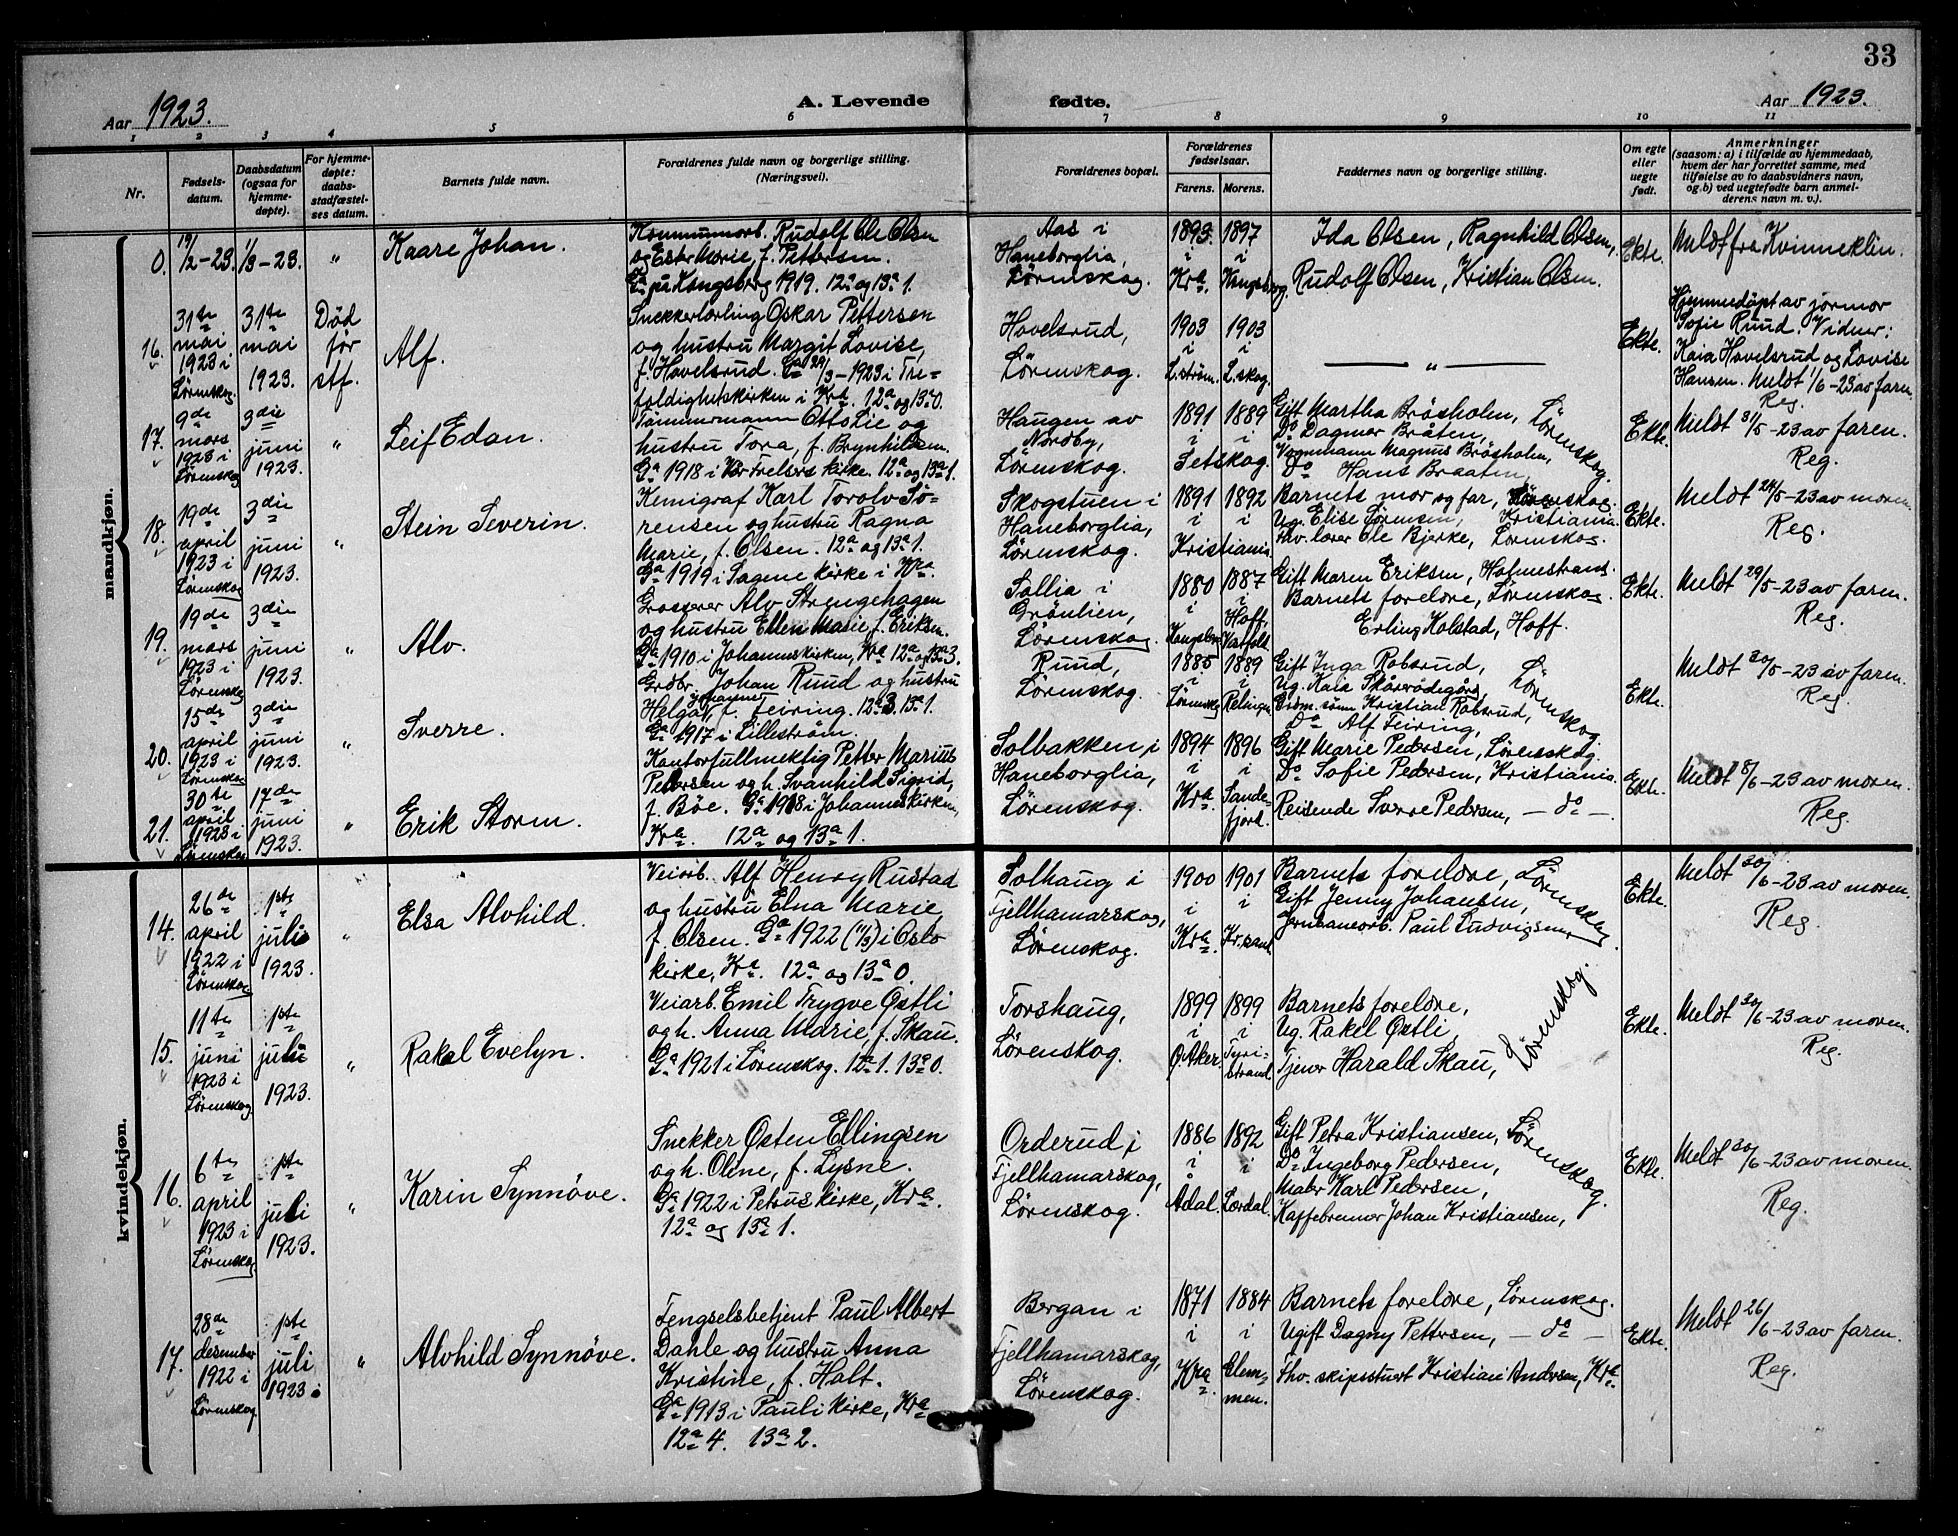 33
Aar 1923.
A. Levende fødte.
Aar 1923.
1 2 3 4 5 6 7 8 9 10 11
Nr.
Fødsels-
datum.
Daabsdatum
(ogsaa for
hjemme-
døpte).
For hjemme-
døpte:
daabs-
stadfæstel-
ses datum.
Barnets fulde navn.
Forældrenes fulde navn og borgerlige stilling.
(Næringsvei).
Forældrenes bopæl.
Forældrenes
fødselsaar.
Farens. Morens.
Faddernes navn og borgerlige stilling.
Om egte
eller
uegte
født.
Anmerkninger
(saasom: a) i tilfælde av hjemmedaab,
hvem der har forrettet samme, med
tilføielse av to daabsvidners navn,
og b) ved uegtefødte barn anmel-
derens navn m. v.).
mandkjøn.
0.
19/2-23.
1/3-23.
"
Kaare Johan.
Kommunearb. Rudolf Ole Olsen
og Ester Marie, f. Pettersen.
Gᵃ på Kongsberg 1919. 12ᵃ og 13ᵃ 1.
Aas i
Haneborglia,
Lørenskog.
1893.
i
Krᵃ.
1897
i
Kongsberg.
Ida Olsen, Ragnhild Olsen,
Rudolf Olsen, Kristian Olsen.
Ekte.
Meldt fra Kvinneklin.
16.
31te
mai
1923 i
Lørenskog
31te
mai
1923.
Død
før
stf.
Alf.
Snekkerlærling Oskar Pettersen
og hustru Margit Lovise,
f. Hovelsrud. Gᵃ 29/3-1923 i Tre-
foldighetskirken i Krᵃ. 12ᵃ og 13ᵃ 0.
Hovelsrud,
Lørenskog.
1903
i
L.strøm.
1903
i
L.skog.
— " —
Ekte.
Hjemmedøpt av jormor
Sofie Ruud. Vidner:
Kaia Hovelsrud og Lovise
Hansen. Meldt 1/6-23 av faren
Reg.
17.
9de
mars
1923 i
Lørenskog
3die
juni
1923.
"
Leif Edan.
Tømmermann Otto Lie og
hustru Tora, f. Brynhildsen.
Gᵃ 1918 i Vår Frelsers kirke. 12ᵃ og 13ᵃ 1.
Haugen av
Nordby,
Lørenskog.
1891
i
1889
i
Setskog.
Gift Martha Bråsholm,
Dᵒ Dagmar Bråten,
Vognmann Magnus Bråsholm,
Dᵒ Hans Braaten,
Lørenskog.
Ekte.
Meldt 31/5-23 av faren.
Reg.
18.
19de
april
1923 i
Lørenskog
3die
juni
1923.
"
Stein Severin.
Kemigraf Karl Torolv Sö-
rensen og hustru Ragna
Marie, f. Olsen. 12ᵃ og 13ᵃ 1.
Gᵃ 1919 i Sagene kirke i Krᵃ.
Skogstuen i
Haneborglia,
Lørenskog.
1891
i
1892
i
Kristiania.
Barnets mor og far, Lørenskog.
Ug. Elise Sørensen, Kristiania.
Fhv. lærer Ole Bjerke, Lørenskog.
Ekte.
Meldt 24/5-23 av moren.
Reg.
19.
19de
mars
1923 i
Lørenskog
3die
juni
1923.
"
Alv.
Grosserer Alv Strengehagen
og hustru Ellen Marie, f. Eriksen.
Gᵃ 1910 i Johanneskirken, Krᵃ 12ᵃ og 13ᵃ 3.
Sollia i
Grönlien,
Lørenskog.
1880
i
Kongsberg
1887
i
Hoff,
Vestfold.
Gift Maren Eriksen, Holmestrand.
Barnets foreldre, Lørenskog.
Erling Kolstad, Hoff.
Ekte.
Meldt 29/5-23 av faren.
Reg.
20.
15de
april
1923 i
Lørenskog
3die
juni
1923.
"
Sverre.
Grdbr. Johan Ruud og hustru
Helga Johanne, f. Feiring. 12ᵃ 3. 13ᵃ 1.
Gᵃ 1917 i Lilleström.
Ruud,
Lørenskog.
1885
i
Lørenskog
1889
i
Relingen
Gift Inga Robsrud,
Ug. Kaia Skårerödegård,
Grdm. sønn Kristian Robsrud,
Dᵒ Alf Feiring,
Lørenskog.
Ekte.
Meldt 30/5-23 av faren.
Reg.
21.
30te
april
1923 i
Lørenskog
17de
juni
1923.
"
Erik Storm.
Kontorfullmektig Petter Marius
Petersen og h. Svanhild Sigrid,
f. Böe. Gᵃ 1918 i Johanneskirken,
Krᵃ. 12ᵃ og 13ᵃ 1.
Solbakken, i
Haneborglia,
Lørenskog.
1894
i
Krᵃ.
1896
i
Sande-
fjord.
Gift Marie Pedersen, Lørenskog.
Dᵒ Sofie Pedersen, Kristiania.
Reisende Sverre Pedersen, — dᵒ —.
Ekte.
Meldt 8/6-23 av moren.
Reg.
kvindekjøn.
14.
26de
april
1922 i
Lørenskog
1ste
juli
1923.
"
Elsa Alvhild.
Veiarb. Alf Henry Rustad
og hustru Elna Marie,
f. Olsen. Gᵃ 1922 (11/3) i Oslo
kirke, Krᵃ. 12ᵃ og 13ᵃ 0.
Solhaug i
Fjellhamarskog,
Lørenskog.
1900
i
Krᵃ.
1901
i
Kr.sand.
Barnets forelдre,
Gift Jenny Johansen,
Jernbanearb. Paul Ludvigsen,
Lørenskog
Ekte.
Meldt 30/6-23 av moren.
Reg.
15.
11te
juni
1923 i
Lørenskog
1ste
juli
1923.
"
Rakel Evelyn.
Veiarb. Emil Trygve Østli
og h. Anna Marie, f. Skau.
Gᵃ 1921 i Lørenskog. 12ᵃ 1. 13ᵃ 0.
Torshaug,
Lørenskog.
1899
i
Ø. Aker.
1899
i
Tyri-
strand.
Barnets forelдre,
Ug. Rakel Østli,
Tjener Harald Skau,
Lørenskog.
Ekte.
Meldt 30/6-23 av moren.
Reg.
16.
6te
april
1923 i
Lørenskog
1ste
juli
1923.
"
Karin Synnöve.
Snekker Østen Ellingsen
og h. Oline, f. Lysne.
Gᵃ 1922 i Petrus kirke, Krᵃ.
12ᵃ og 13ᵃ 1.
Orderud i
Fjellhamarskog,
Lørenskog.
1886
i
Ådal.
1892
i
Lærdal.
Gift Petra Kristiansen,
Dᵒ Ingeborg Pedersen,
Maler Karl Pedersen,
Kaffebrenner Johan Kristiansen,
Lørenskog.
Ekte.
Meldt 30/6-23 av moren.
Reg.
17.
28de
desember
1922 i
Lørenskog
1ste
juli
1923
"
Alvhild Synnöve.
Fengselsbetjent Paul Albert
Dahle og hustru Anna
Kristine, f. Holt.
Gᵃ 1913 i Pauli kirke, Krᵃ
12ᵃ 4. 13ᵃ 2.
Bergan i
Fjellhamarskog,
Lørenskog.
1871
i
Krᵃ.
1884
i
Glem-
men.
Barnets foreldre, Lørenskog.
Ugift Dagny Pettersen, — dᵒ —
Fhv. skipsstuert Kristian Andersen, Krᵃ.
Ekte.
Meldt 26/6-23 av faren.
Reg.